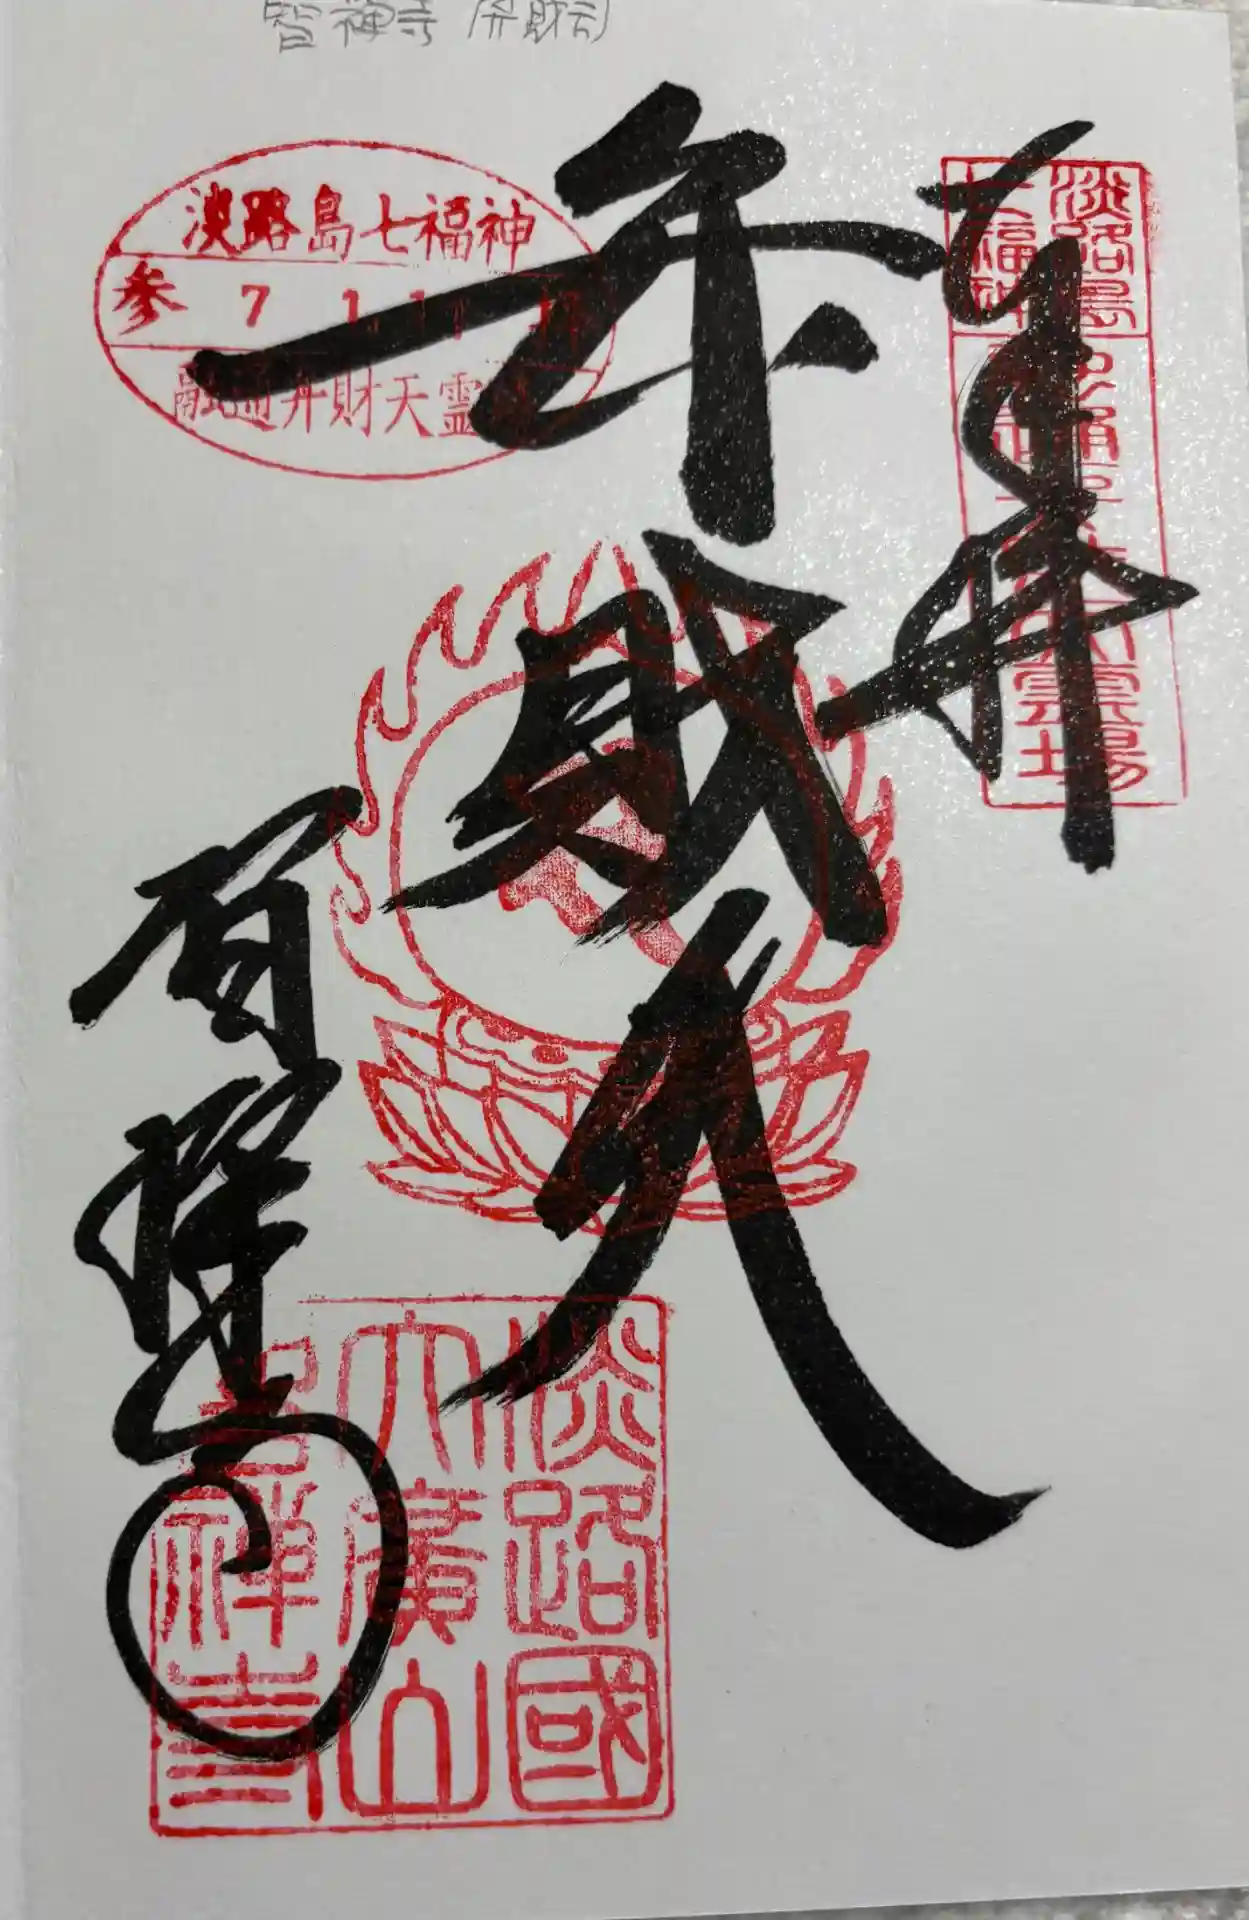 智禅寺 弁財天
奉拝
淡路島
七福神
弁財天
智禅寺
淡路島七福神
参 7 1.11
融通弁財天霊
淡路國
大廣山
智禅寺